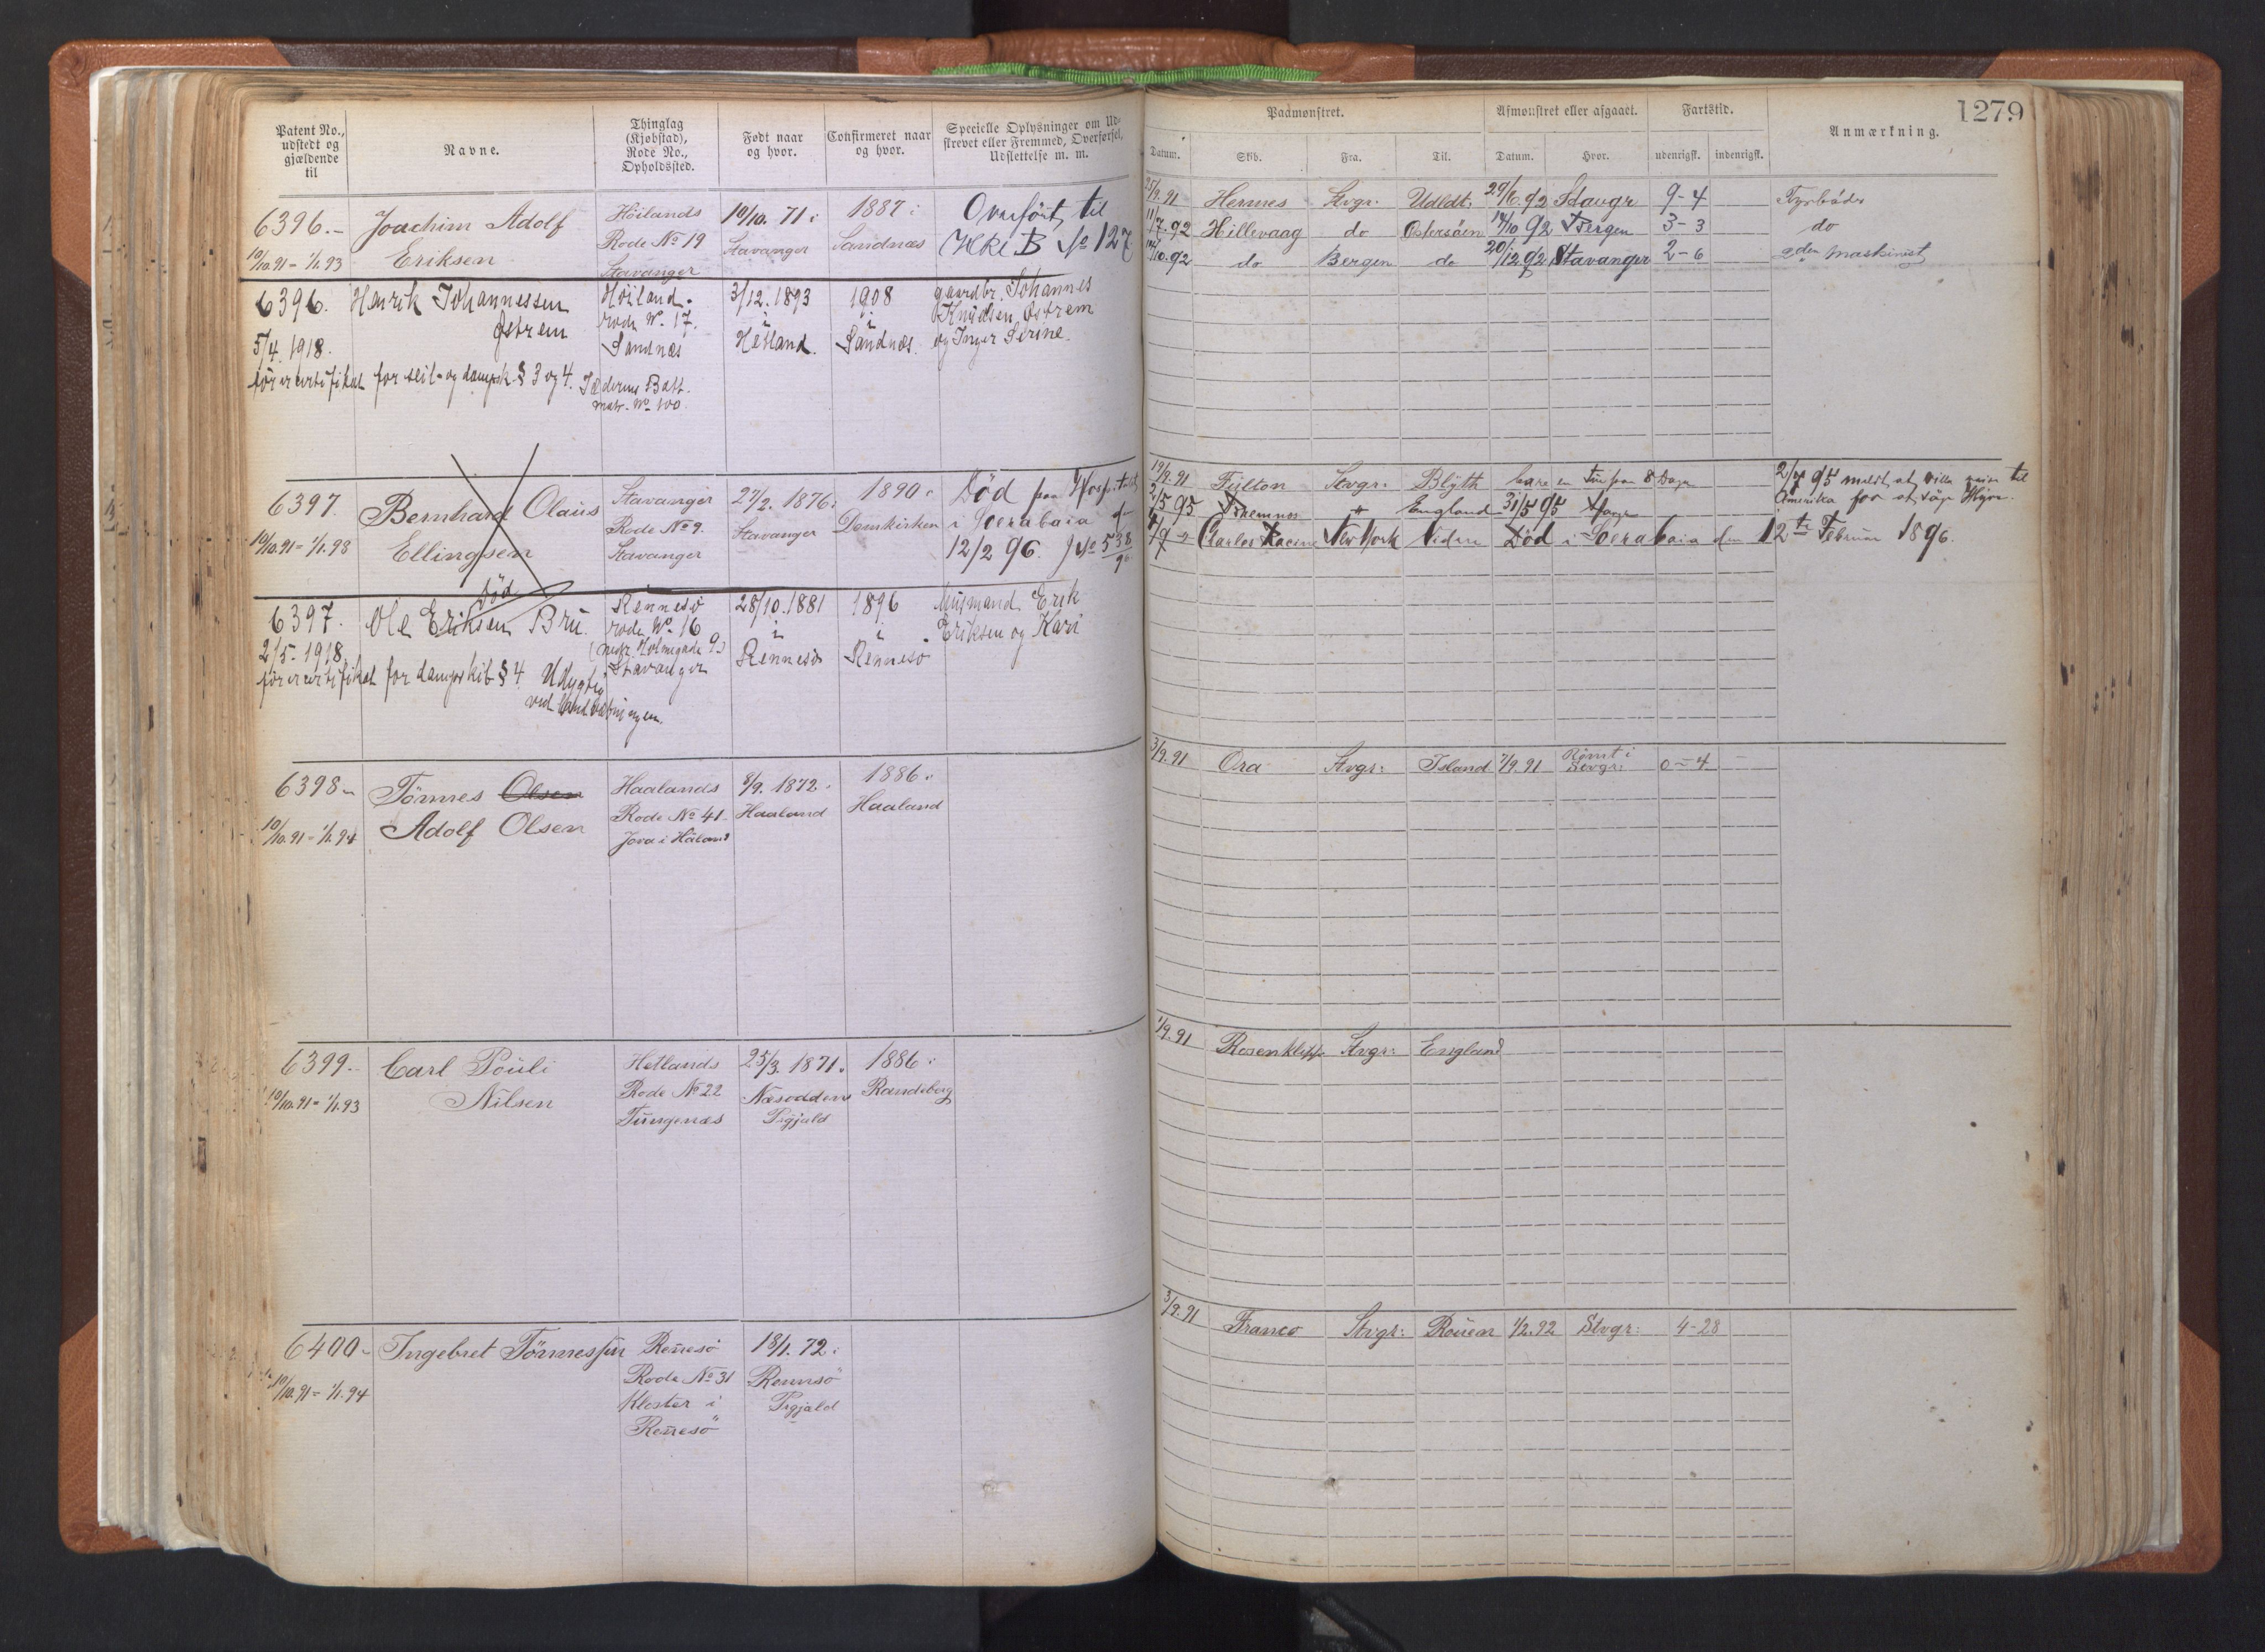 Patent No.,
udstedt og
gjældende
til
Navne.
Thinglag
(Kjøbstad),
Rode No.,
Opholdssted.
Født naar
og hvor.
Confirmeret naar
og hvor.
Specielle Oplysninger om Ud-
strevet eller Fremmed, Overførsel,
Udslettelse m. m.
6396.-
10/10.91 - 1/1.93
Joachim Adolf
Eriksen
Höilands
Rode No 19
Stavanger
10/10. 71 i
Stavanger
1887 i
Sandnæs
Overfört til
No 127
6396.
5/4. 1918.
Henrik Johannessen
Østrem
Höiland.
rode No. 17.
Sandnæs
3/12. 1893
i
Hetland.
1908
i
Sandnæs.
gaardbr. Johannes
Knudsen Østrem
og Inger Serine.
förercertifikat for seil- og dampsk. § 3 og 4.
Jæderens Batt.
matr. No. 100.
6397.
10/10.91 - 1/1.98
Bernhard Olaus
Ellingsen
Stavanger
Rode No 9.
Stavanger
27/2. 1876 i
Stavanger
1890 i
Domkirken
Död paa Hospitalet
i Soerabaia
12/2 96. J No 538
6397.
2/5. 1918.
död
Ole Eriksen Bru.
Rennesö
rode No. 16
Holmegade 9.)
Stavanger
28/10.1881
i
Rennesö
1896
i
Rennesö
Husmand Erik
Eriksen og Kari
förercertifikat for dampskib § 4 Udygtig
ved
6398-
10/10.91 - 1/1.94
Tönnes Olsen
Adolf Olsen
Haalands
Rode No 41.
Jora i Håland
8/9. 1872 i
Haaland
1886 i
Haaland
6399.-
10/10.91 - 1/1.93
Carl Pouli
Nilsen
Hetlands
Rode No 22
Tungenæs
25/3. 1871 i
Næsoddens
Prgjald
1886 i
Randeberg
6400-
10/10.91 - 1/1.94
Ingebret Tönnessen
Rennesö
Rode No 31
Kloster i
Rennesö
18/1. 72 i
Rennesö
Prgjald
1279
Paamønstret.
Afmønstret eller afgaaet.
Fartstid.
Anmærkning.
Datum.
Skib.
Fra.
Til.
Datum.
Hvor.
udenrigsk.
indenrigsk.
25/9.91 Hermes Stvgr: Udldt. 29/6.92 Stavgr 9-4 Fyrböder
11/7.92 Hillevaag do Östersöen 14/10 92 Bergen 3-3 do
14/10.92 do Bergen do 20/12 92 Stavanger 2-6 2den maskinist
19/9.91 Fulton Stvgr: Blyth bare en 8 Dage
2/5 95 England 31/5 95
2/7 95 meldt, at ville reise til
Amerika for at söge Hyre.
Charles Racine New York Viden Död i Soerabaia den 12te Februar 1896.
3/9.91 Ora Stvgr: Island 7/9.91 Römt i
Stvgr: 0-4
1/9.91 Rosenkilde Stvgr: England
3/9.91 Franco Stvgr: Rouen 1/2.92 Stvgr: 4-28